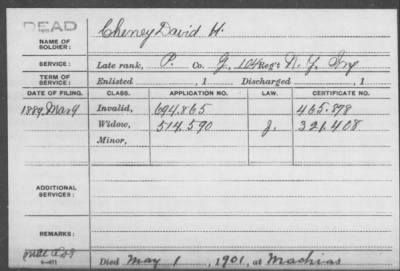 DEAD
NAME OF SOLDIER: Cheney David H.
SERVICE: Late rank, P. Co. G, 104 Reg't N. Y. Inf
TERM OF SERVICE: Enlisted , 1 Discharged , 1
DATE OF FILING. CLASS. APPLICATION NO. LAW. CERTIFICATE NO.
1889, Mar 9 Invalid, 694.865 465.878
Widow, 514.590 J. 321.408
Minor,
ADDITIONAL SERVICES:
REMARKS:
Died May 1, 1901, at Machias